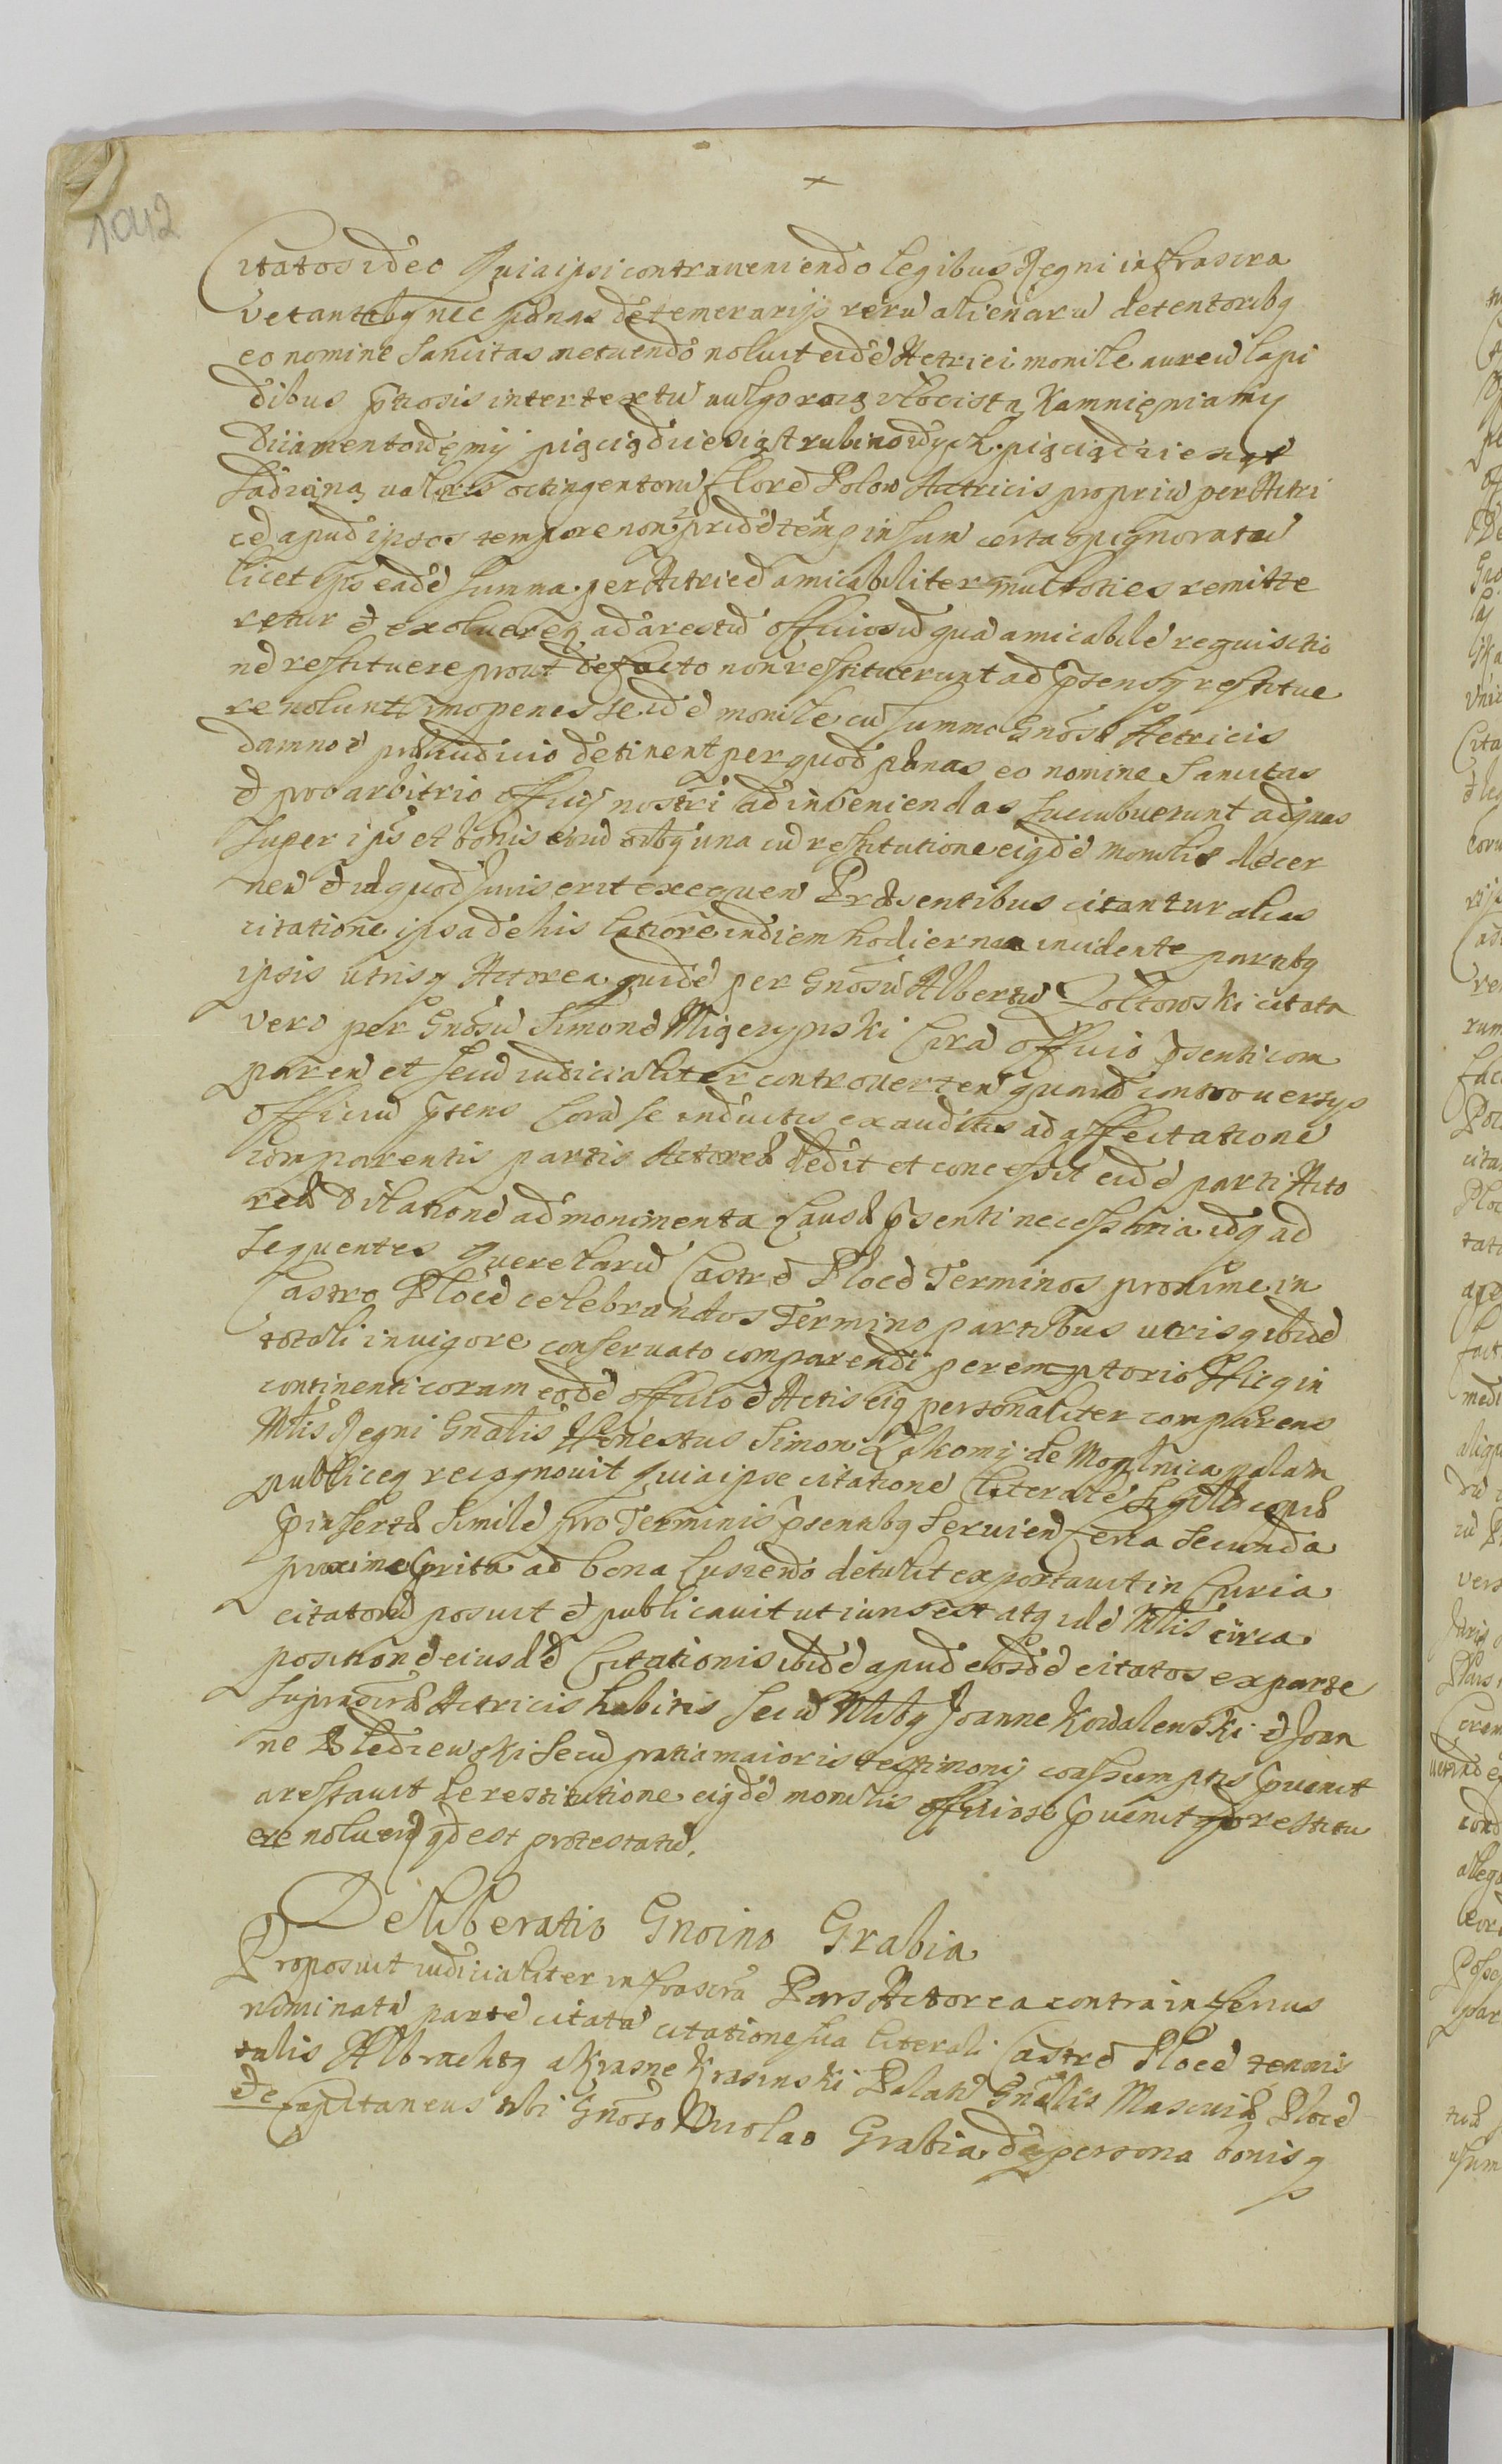 1042
Citatos ideo Quia ipsi contraveniendo legibus Regni infrascra
vetantibq nec pænas de temerarijs rerū alienarū detentoribq
eo nomine sancitas metuendo noluit eidē Actrici monile aureū lapi
dibus ptiosis intertextu vulgo złocista Kamnięniamy
Diiamentowęmij pięcią dziesiąt rubinowych pięcią dziesiąt
sadzina valoris octingentorū florē Polon Actricis propriū per Actri
cē apud ipsos tempore non pridē in sum certa opignoratū
licet ips eadē summa per Actricē amicabiliter multoties remitte
retur et exolveret ad arestū officiosū quā amicabilē requisitio
nē restituere prout de facto non restituerunt ad psensq restitue
re nolunt imo penes se idē monile cū summo Gnosæ Actricis
damno è præiudicio detinent per quod pænas eo nomine sancitas
et pro arbitrio officij nostri ad inveniendas succubuerunt ad quas
super ipīs et bonis eorū oibq una cū restitutione eiqdē monilis decer
nen et id quod Juris erit exequen Præsentibus citantur alias
citatione ipsa de his latiore in diem hodierna incidente partibq
ipsis utrisq Actorea quidē per Gnosū Albertū Zołtowski citata
vero per Gnosū Simonē Cora officio psenti com
paren et secū iudicialiter controverten quarū controversys
officiū psens Corā se inductis exauditis ad affectationē
comparentis partis Actoreæ dedit et concessit eidē parti Acto
reæ Dilationē ad monimenta Causæ psenti necessaria idq ad
sequentes querelarū Castrē Plocē Terminos proxime in
Castro Plocē celebrandos Termino partibus utrisq ibidē
totali in vigore conservato comparendi peremptorio Hicq in
continenti coram eodē officio et Actis eiq personaliter comparens
Mtlis Regni Gnalis Honestus Simon Łakomij de Mogilnica palam
publiceq recognovit Quia ipse citationē literalē copiæ
pinsertæ similē pro Terminis psentibq servien feria secunda
proxime prita ad bona Cusiendo detulit exportavit in Curia
citatorū posuit et publicavit ut iuris est atq idē Mtlis circa
positionē eiusdē Citationis ibidē apud eosdē citatos ex parte
suprascræ Actricis habitis secū Nlibq Joanne Kowalewski et Joan
ne Bledzewski secū pratia maioris testimonij coassumptis pvenit
arestavit de restitutione eiqdē monilis officiose pvenit restitu
ere noluerq qd est protestatū.
Deliberatio Gnoino Grabia
Proposuit iudicialiter infrascra Pars Actorea contra inferius
nominatā partē citatā citatione sua literali Castrē Plocē tenoris
talis Albrachtq a Krasne Krasinski Palatū Gnālis Masoviæ Plocē
etc Capitaneus tibi Gnoso Nicolao Grabia de persona bonisq